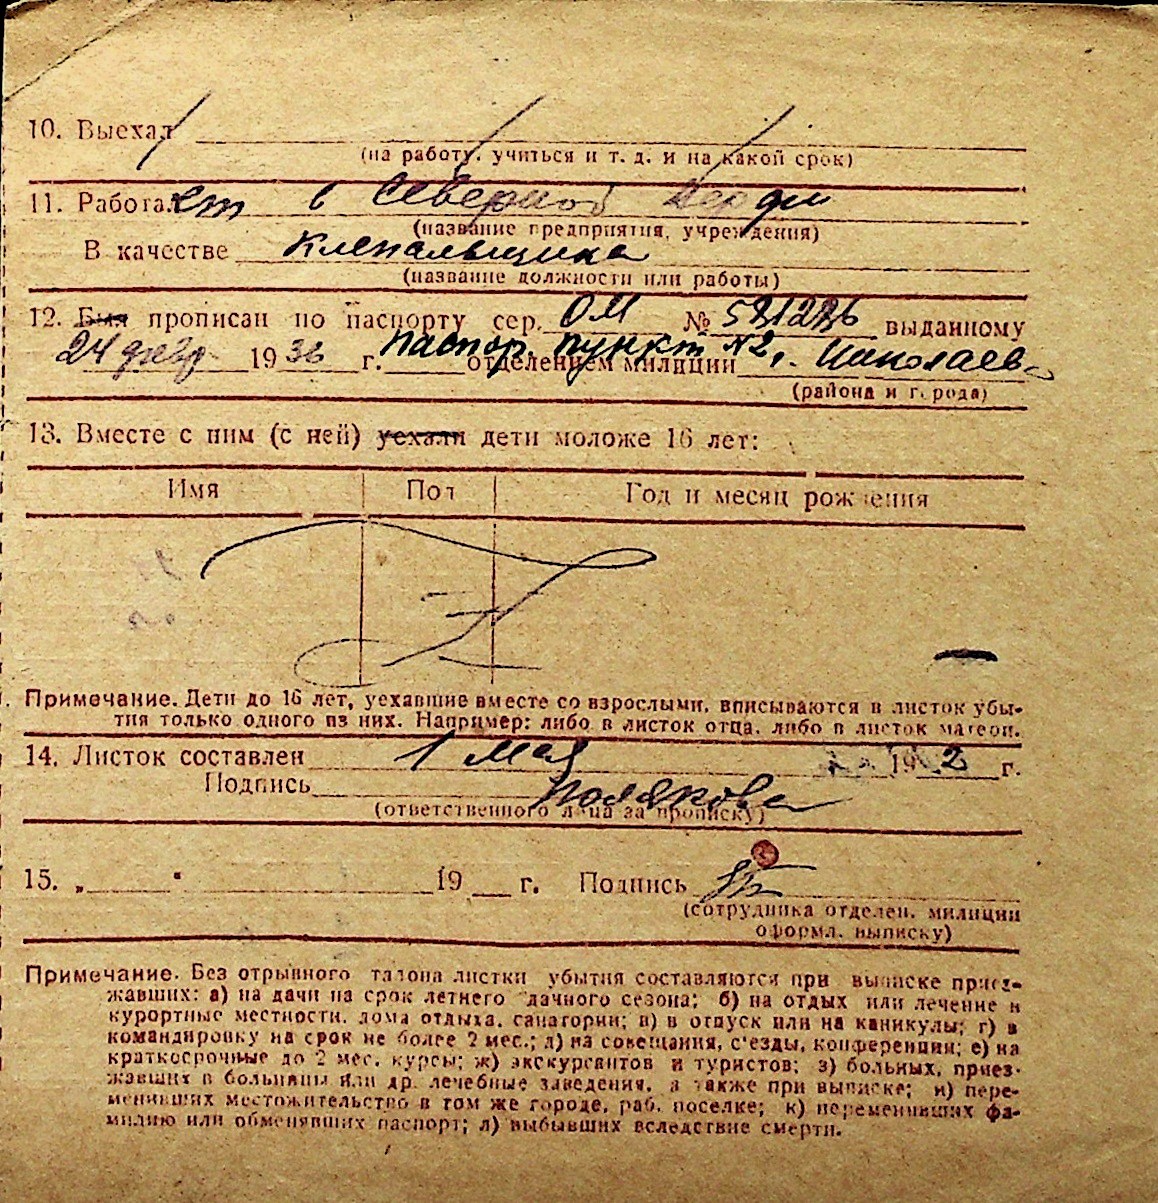 10. Выехал
(на работу, учиться и т. д. и на какой срок)
11. Работает в Северной верфи
(название предприятия, учреждения)
В качестве клепальщика
(название должности или работы)
12. Был прописан по паспорту сер. ОМ № выданному
24 декабр 1936 г. паспор. пункт №2, отделением милиции г. Николаев
(района и города)
13. Вместе с ним (с ней) уехали дети моложе 16 лет:
Имя Пол Год и месяц рождения
Примечание. Дети до 16 лет, уехавшие вместе со взрослыми, вписываются в листок убы-
тия только одного из них. Например: либо в листок отца, либо в листок матери.
14. Листок составлен 1 мая 19 2 г.
Подпись Полякова
(ответственного лица за прописку)
15. „ “ 19 г. Подпись
(сотрудника отделен. милиции
оформл. выписку)
Примечание. Без отрывного талона листки убытия составляются при выписке приез-
жавших: а) на дачи на срок летнего дачного сезона; б) на отдых или лечение в
курортные местности, дома отдыха, санатории; в) в отпуск или на каникулы; г) в
командировку на срок не более 2 мес.; д) на совещания, с'езды, конференции; е) на
краткосрочные до 2 мес. курсы; ж) экскурсантов и туристов; з) больных, приез-
жавших в больницы или др. лечебные заведения, а также при выписке; и) пере-
менивших местожительство в том же городе, раб. поселке; к) переменивших фа-
милию или обменявших паспорт; л) выбывших вследствие смерти.